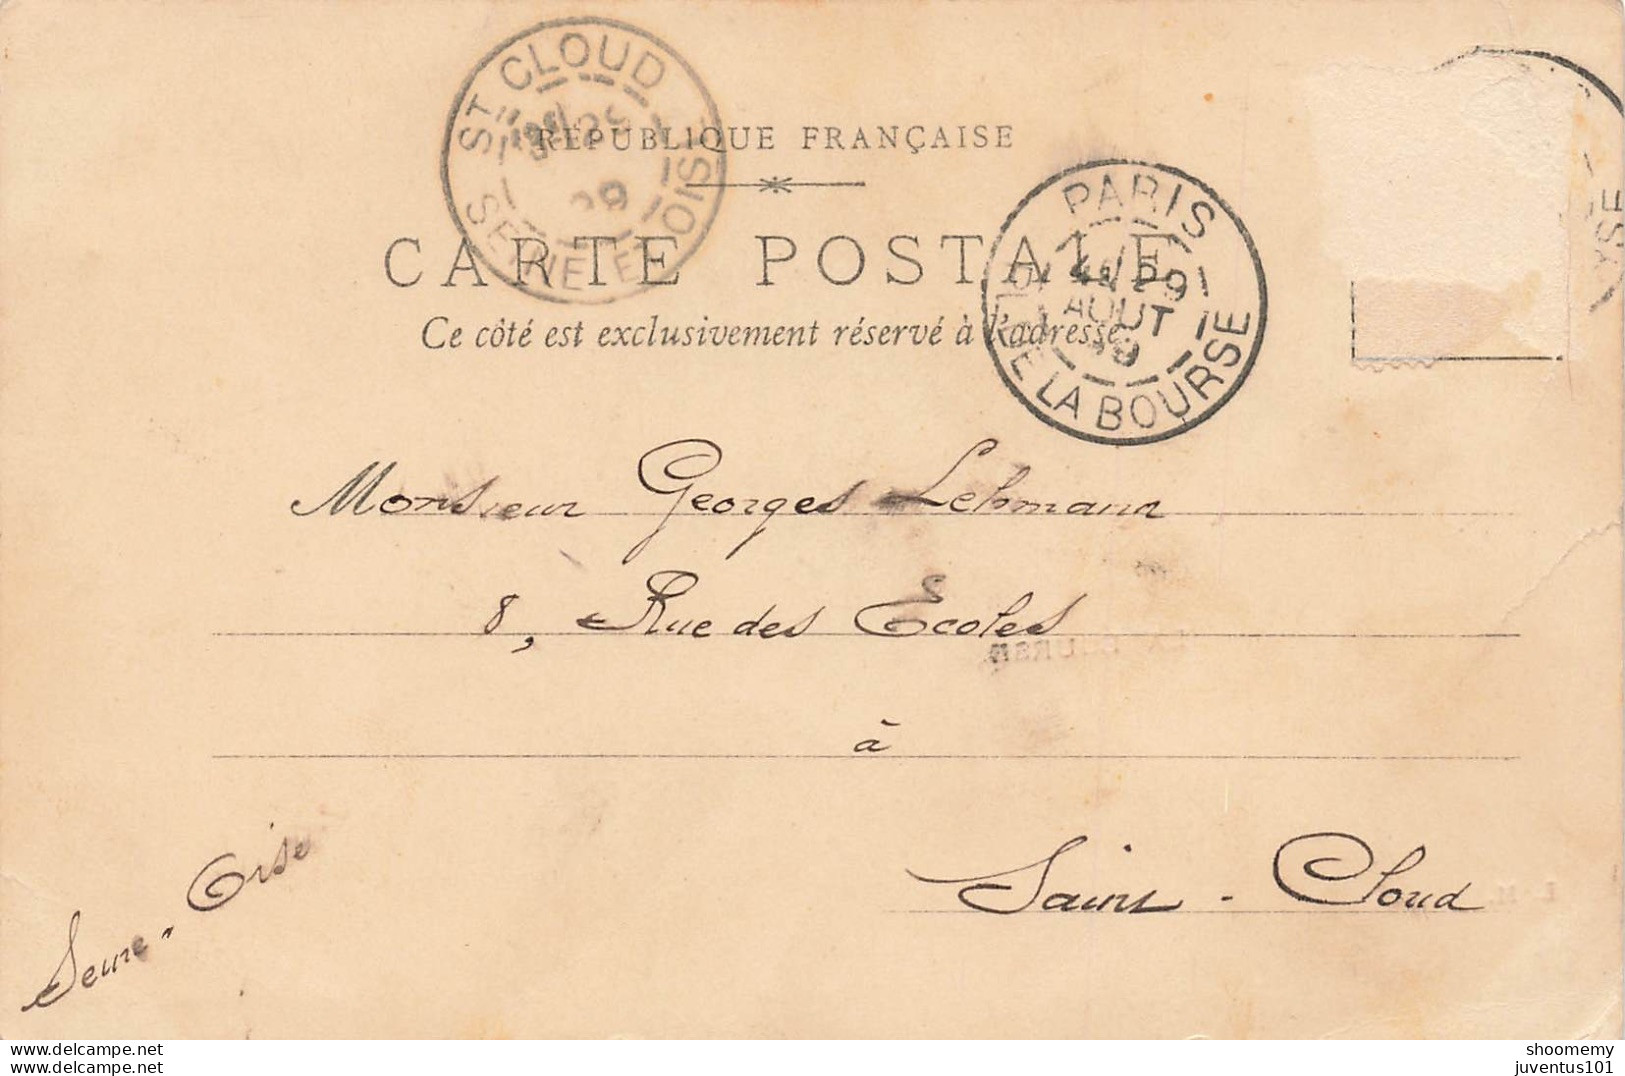 ST CLOUD
SEINE ET OISE
RÉPUBLIQUE FRANÇAISE
CARTE POSTALE
Ce côté est exclusivement réservé à l'adresse
PARIS
29
AOUT
99
DE LA BOURSE
YSE
Monsieur Georges Lehmann
8, Rue des Ecoles
à
Saint-Cloud
Seine-Oise
delcampe.net
shoomemy
juventus101